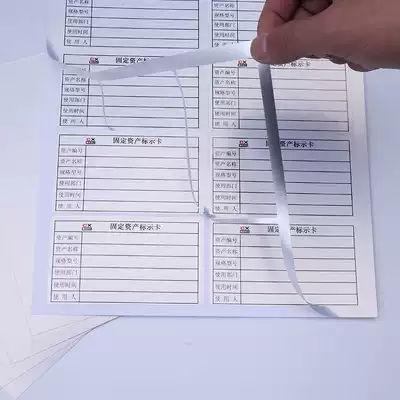 规格型号
使用部门
使用时间
使用人
规格型号
使用部门
使用时间
使用人
资产名称
规格型号
使用部门
使用时间
使用人
固定资产标示卡
使用部门
使用时间
使用人
固定资产标示卡
资产编号
资产名称
规格型号
使用部门
使用时间
使用人
固定资产标示卡
资产编号
资产名称
规格型号
使用部门
使用时间
使用人
固定资产标示卡
资产编号
资产名称
规格型号
使用部门
使用时间
使用人
固定资产标示卡
资产编号
资产名称
规格型号
使用部门
使用时间
使用人